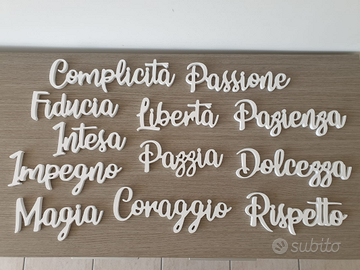 Complicità Passione
Fiducia Libertà Pazienza
Intesa
Impegno Pazzia Dolcezza
Magia Coraggio Rispetto
subito